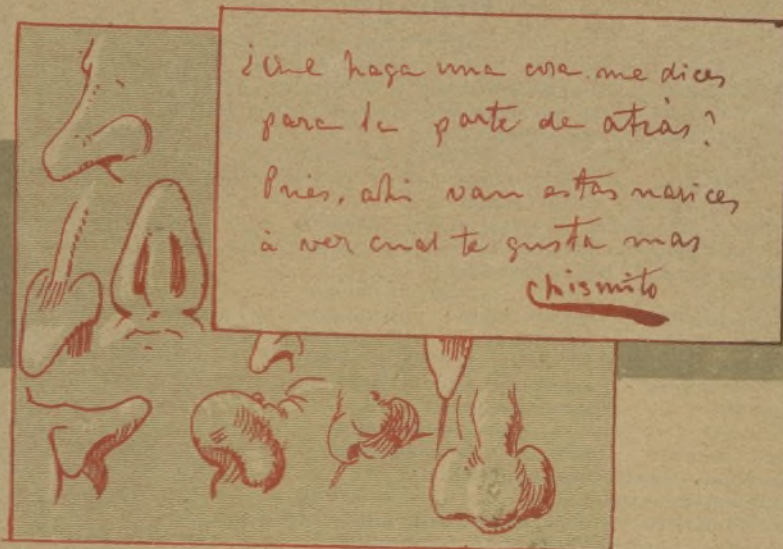 ¿Que haga una cosa me dices
para la parte de atrás?
Pues, ahi van estas narices
à ver cual te gusta mas
chismito